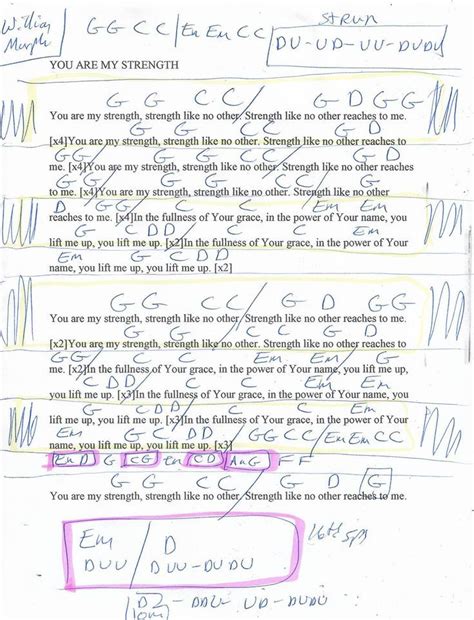 William
Murphy
G G C C / Em Em C C
STRUM
DU-UD-UU-DUDU
YOU ARE MY STRENGTH
G G C C / G D G G
You are my strength, strength like no other. Strength like no other reaches to me.
G G C C / G D
[x4]You are my strength, strength like no other. Strength like no other reaches to
G G / G G C C / G D
me. [x4]You are my strength, strength like no other. Strength like no other reaches
G G / G G C C / G
to me. [x4]You are my strength, strength like no other. Strength like no other
D G G / G C C Em Em
reaches to me. [x4]In the fullness of Your grace, in the power of Your name, you
G C D D / G C C Em
lift me up, you lift me up. [x2]In the fullness of Your grace, in the power of Your
Em G C D D
name, you lift me up, you lift me up. [x2]
G G C C / G D G G
You are my strength, strength like no other. Strength like no other reaches to me.
G G C C / G D
[x2]You are my strength, strength like no other. Strength like no other reaches to
G G / G C C Em Em G
me. [x2]In the fullness of Your grace, in the power of Your name, you lift me up,
C D D / G C C Em Em
you lift me up. [x3]In the fullness of Your grace, in the power of Your name, you
G C D D / G C C Em
lift me up, you lift me up. [x3]In the fullness of Your grace, in the power of Your
Em G C D D / G G C C / Em Em C C
name, you lift me up, you lift me up. [x3]
Em D G C G Em C D Am G F F
G G C C / G D G
You are my strength, strength like no other. Strength like no other reaches to me.
Em / D
DUU / DUU-DUDU
UD-DUDU